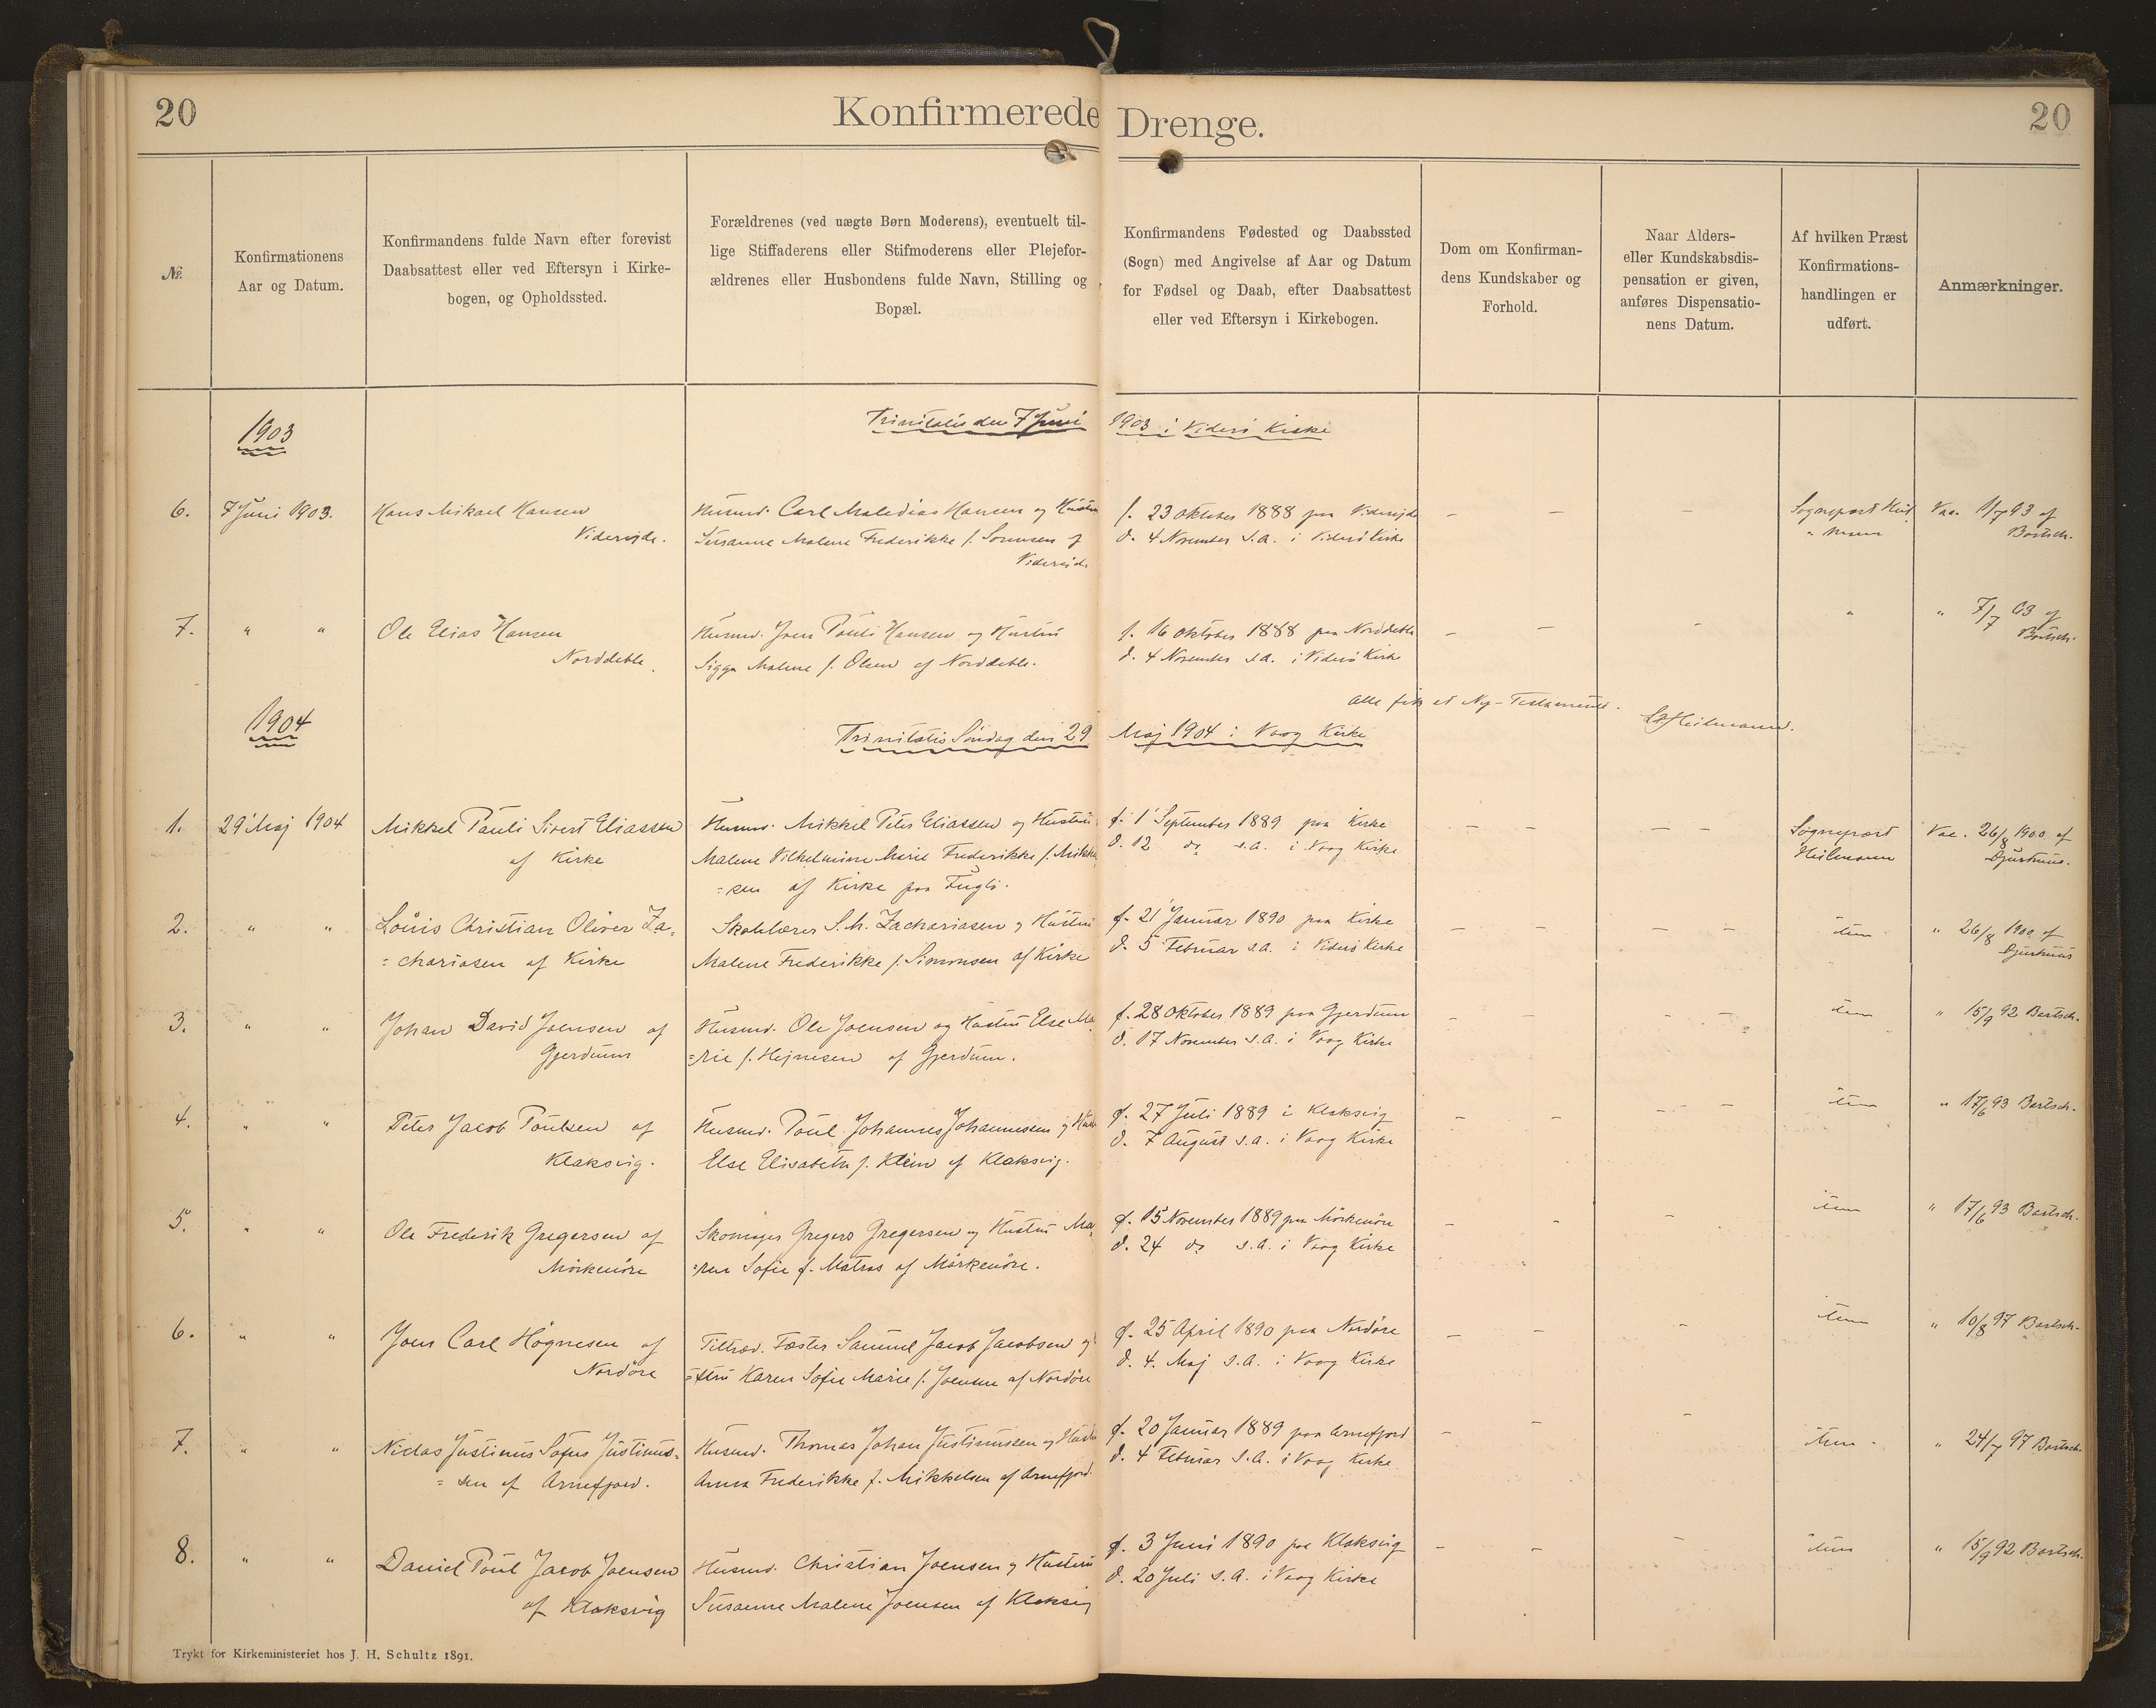 20
Konfirmerede Drenge.
20
№
Konfirmationens
Aar og Datum.
Konfirmandens fulde Navn efter forevist
Daabsattest eller ved Eftersyn i Kirke-
bogen, og Opholdssted.
Forældrenes (ved uægte Børn Moderens), eventuelt til-
lige Stiffaderens eller Stifmoderens eller Plejefor-
ældrenes eller Husbondens fulde Navn, Stilling og
Bopæl.
Konfirmandens Fødested og Daabssted
(Sogn) med Angivelse af Aar og Datum
for Fødsel og Daab, efter Daabsattest
eller ved Eftersyn i Kirkebogen.
Dom om Konfirman-
dens Kundskaber og
Forhold.
Naar Alders-
eller Kundskabsdis-
pensation er given,
anføres Dispensatio-
nens Datum.
Af hvilken Præst
Konfirmations-
handlingen er
udført.
Anmærkninger.
1903
Trinitatis den 7 Juni 1903 i Viderø Kirke
6.
7 Juni 1903.
Hans Mikael Hansen
Viderejde.
Husmd. Carl Maledias Hansen og Hustru
Susanne Malene Frederikke f. Sørensen af
Viderejde
f. 23 Oktober 1888 paa Viderejde
d. 4 November s.a. i Viderø Kirke
— — —
Sognepræst Heil
= mann
Vac. 11/7 93 af
Bartsch.
7.
" "
Ole Elias Hansen
Norddeble.
Husmd. Joen Pauli Hansen og Hustru
Sigga Malene f. Olsen af Norddeble.
f. 16 Oktober 1888 paa Norddeble
d. 4 November s.a. i Viderø Kirke
— — —
"
" 7/7 93 af
Bartsch.
Alle fik et Ny-Testamente.
Heilmann.
1904
Trinitatis Søndag den 29 Maj 1904 i Vaag Kirke
1.
29 Maj 1904
Mikkel Pauli Sivert Eliassen
af Kirke
Husmd. Mikkel Peter Eliassen og Hustru
Malene Vilhelmine Marie Frederikke f. Mikkel
= sen af Kirke paa Fuglø.
f. 1 September 1889 paa Kirke
d. 12 do s.a. i Vaag Kirke
— — — —
Sognepræst
Heilmann
Vac. 26/8 1900 af
Djurhuus.
2.
" "
Louis Christian Oliver Za=
= chariasen af Kirke
Skolelærer S. M. Zachariasen og Hustru
Malene Frederikke f. Simonsen af Kirke
f. 21 Januar 1890 paa Kirke
d. 5 Februar s.a. i Viderø Kirke
— — — —
item
" 26/8 1900 af
Djurhuus
3.
" "
Johan David Joensen af
Gjerdum
Husmd. Ole Joensen og Hustru Else Ma
=rie f. Hejnesen af Gjerdum.
f. 28 Oktober 1889 paa Gjerdum
d. 17 November s.a. i Vaag Kirke
— — — —
item
" 15/9 92 Bartsch.
4.
" "
Peter Jacob Poulsen af
Klaksvig.
Husmd. Poul Johannes Johannesen og Hustru
Else Elisabeth f. Klein af Klaksvig.
f. 27 Juli 1889 i Klaksvig
d. 7 August s.a. i Vaag Kirke
— — — —
item
" 17/6 93 Bartsch.
5.
" "
Ole Frederik Gregersen af
Mörkenöre
Skomager Gregers Gregersen og Hustru Ma
=ren Sofie f. Matras af Mörkenöre.
f. 15 November 1889 paa Mörkenöre
d. 24 do s.a. i Vaag Kirke
— — —
item
" 17/6 93 Bartsch.
6.
" "
Joen Carl Høgnesen af
Nordöre
Tiltræd. Fæster Samuel Jacob Jacobsen og
=stru Karen Sofie Marie f. Joensen af Nordöre
f. 25 April 1890 paa Nordöre
d. 4. Maj s.a. i Vaag Kirke
— — —
item
" 10/8 97 Bartsch.
7.
" "
Niclas Justinus Sofus Justinus=
= sen af Arnefjord.
Husmd. Thomas Johan Justinussen og Hustru
Anna Frederikke f. Mikkelsen af Arnefjord.
f. 20 Januar 1889 paa Arnefjord
d. 4 Februar s.a. i Vaag Kirke
— — —
item
" 24/7 97 Bartsch
8.
" "
Daniel Poul Jacob Joensen
af Klaksvig
Husmd. Christian Joensen og Hustru
Susanne Malene Joensen af Klaksvig
f. 3 Juni 1890 paa Klaksvig
d. 20 Juli s.a. i Vaag Kirke
— — —
item
" 15/9 92 Bartsch.
Trykt for Kirkeministeriet hos J. H. Schultz 1891.